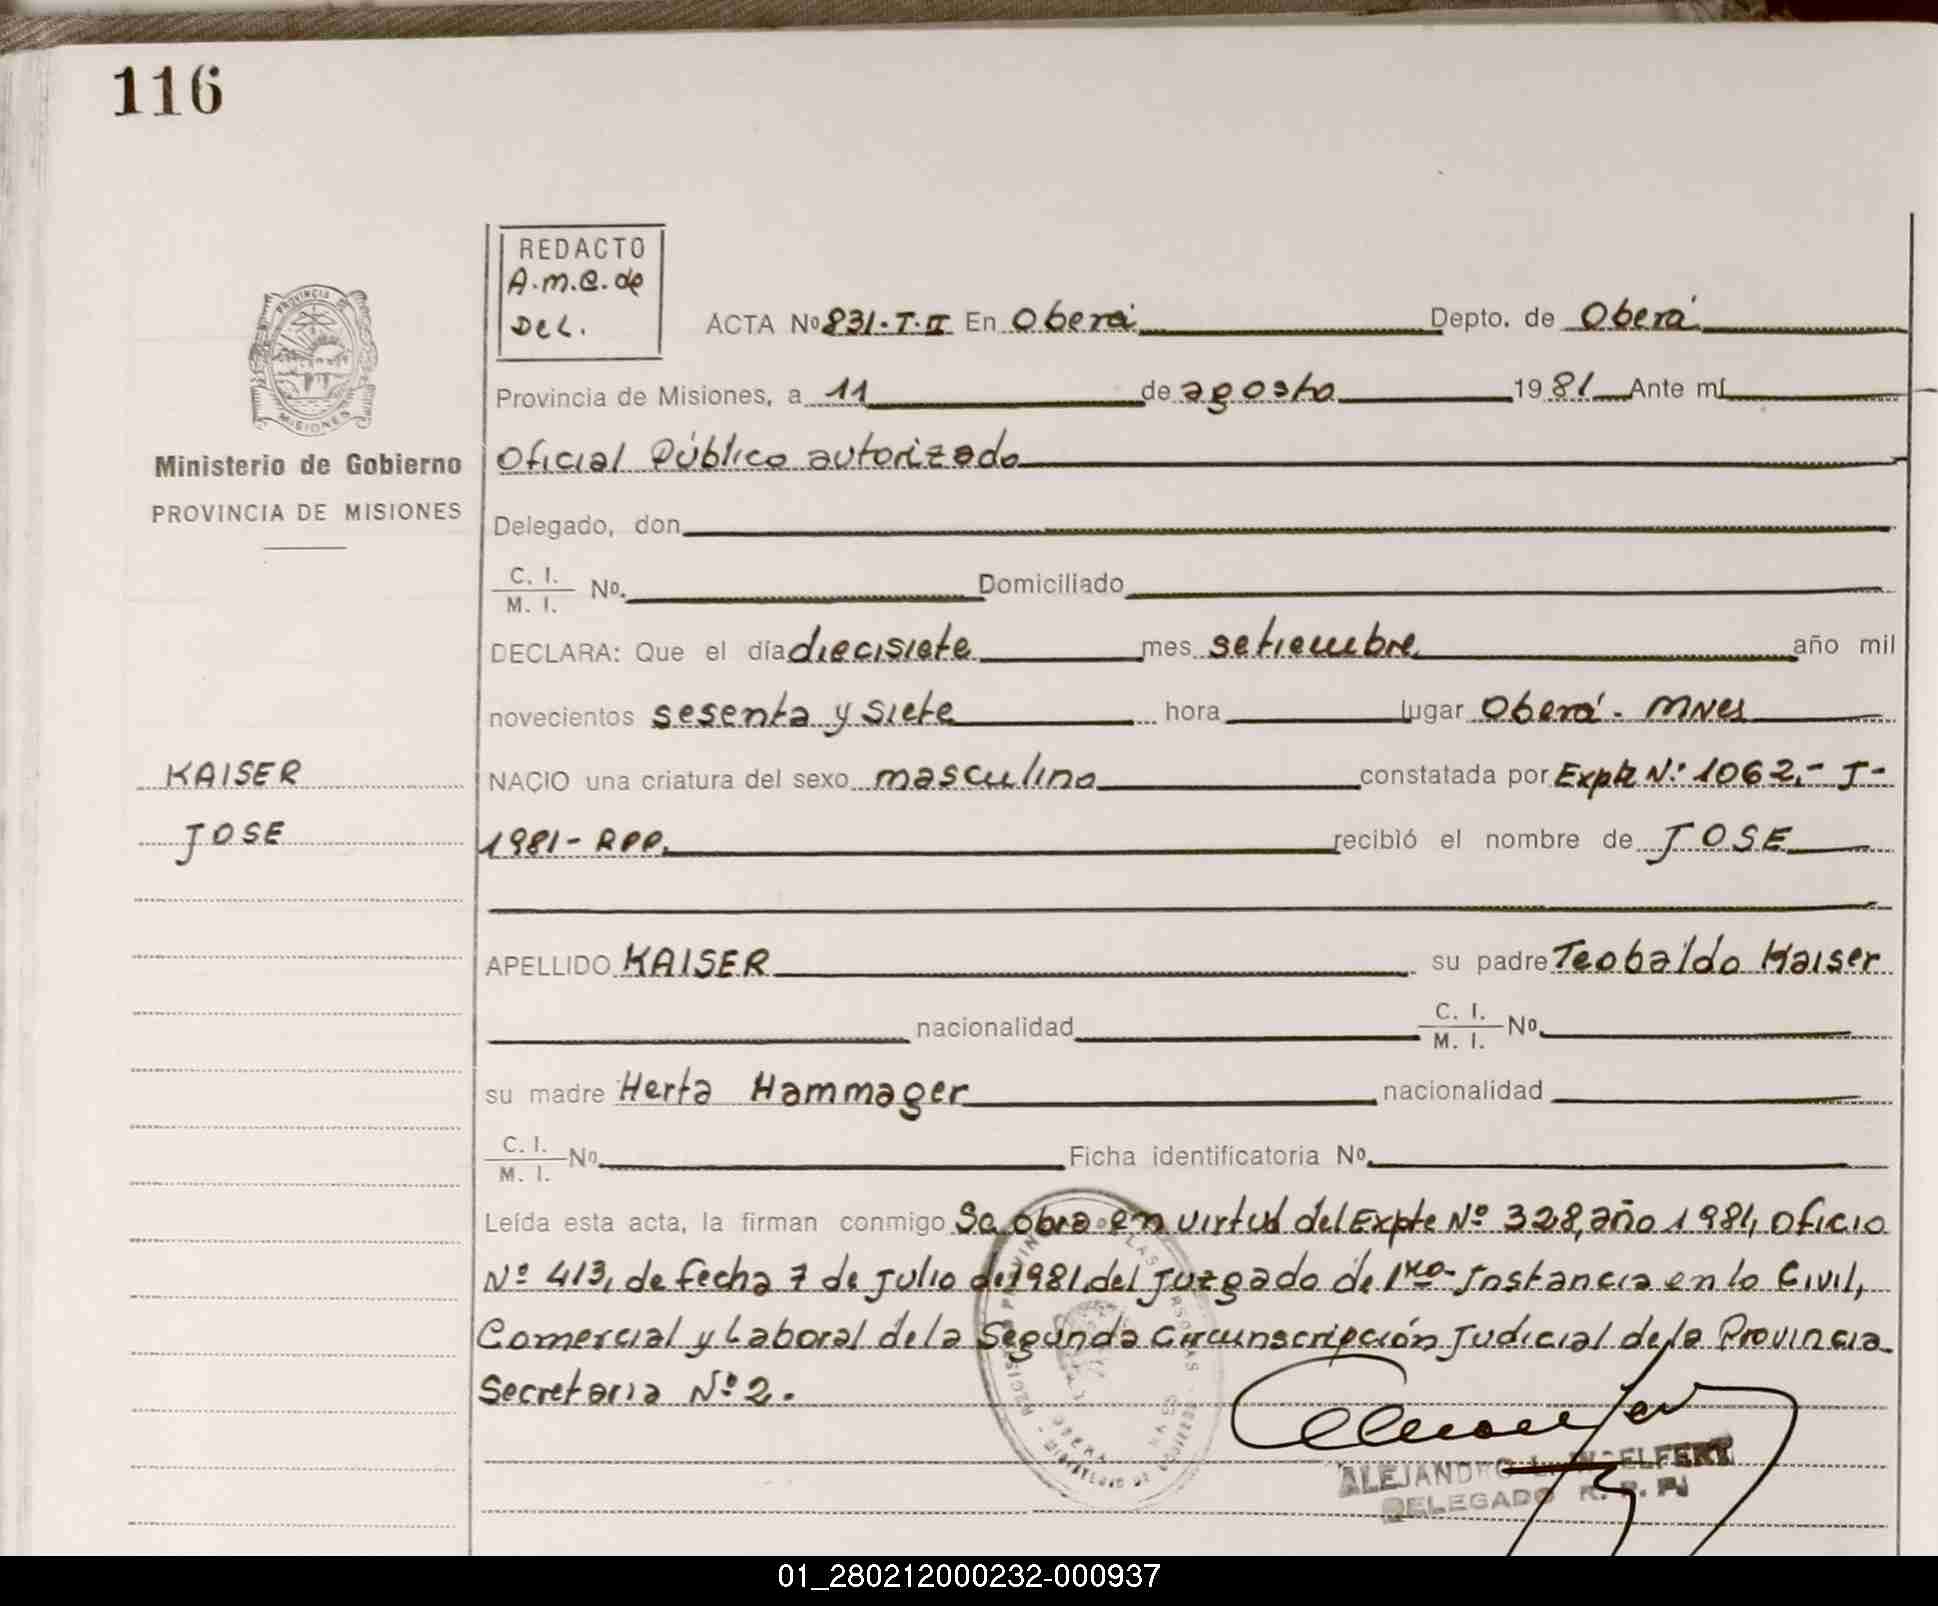 116
REDACTO
A.m.C. de
Del.
ACTA Nº 831-T-II En Oberá Depto. de Oberá
Provincia de Misiones, a 11 de agosto 1981 Ante mí
PROVINCIA DE
MISIONES
Ministerio de Gobierno
PROVINCIA DE MISIONES
Oficial Público autorizado
Delegado, don
C. I.
M. I. Nº. Domiciliado
DECLARA: Que el día diecisiete mes setiembre año mil
novecientos sesenta y siete hora lugar Oberá - MNes
KAISER
NACIO una criatura del sexo masculino constatada por Expte Nº 1062,- J-
JOSE
1981- RPP. recibió el nombre de JOSE
APELLIDO KAISER su padre Teobaldo Kaiser
nacionalidad C. I.
M. I. Nº
su madre Herta Hammager nacionalidad
C. I.
M. I. Nº Ficha identificatoria Nº
Leída esta acta, la firman conmigo Se obra en virtud del Expte Nº 328, año 1981, oficio
Nº 413, de fecha 7 de julio de 1981 del Juzgado de 1ra. Instancia en lo Civil,
Comercial y Laboral de la Segunda Circunscripción Judicial de la Provincia
Secretaria Nº 2.
ALEJANDRO
DELEGADO R. P. P.
01_280212000232-000937